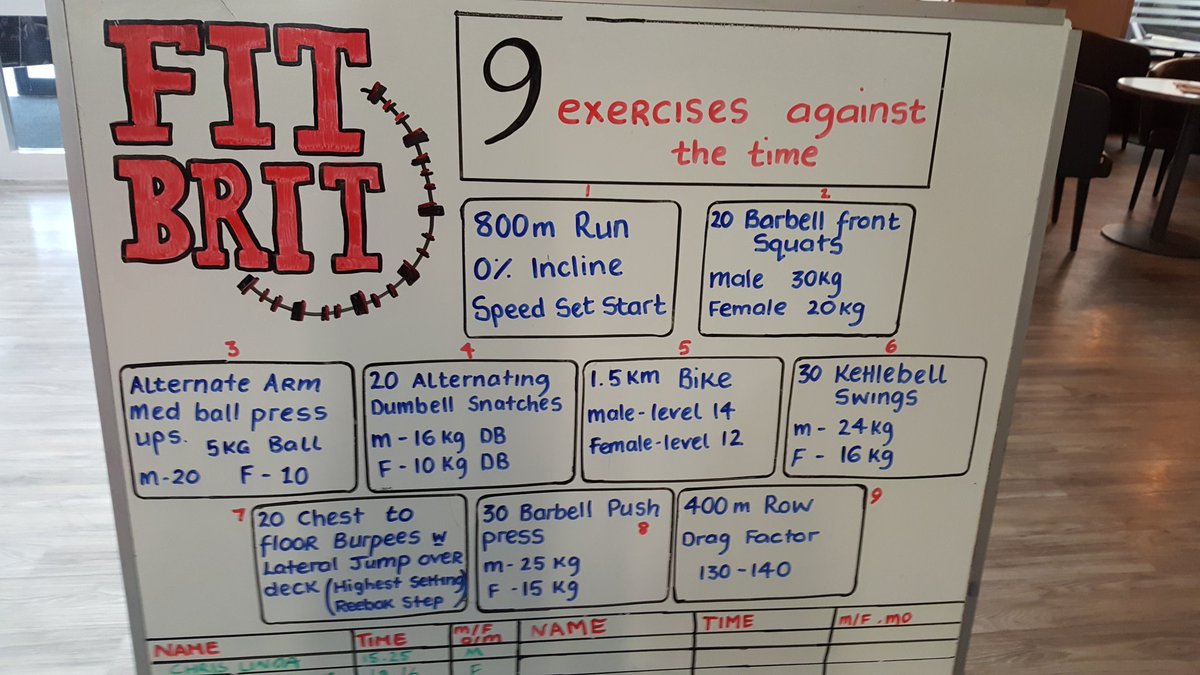 FIT
BRIT
9 exercises against
the time
1
800m Run
0% Incline
Speed Set Start
2
20 Barbell front
Squats
male 30kg
Female 20kg
3
Alternate Arm
med ball press
ups. 5KG Ball
M-20 F-10
4
20 Alternating
Dumbell Snatches
m-16kg DB
F-10kg DB
5
1.5km Bike
male-level 14
Female-level 12
6
30 Kettlebell
Swings
m-24kg
F-16kg
7
20 Chest to
floor Burpees w
Lateral Jump over
deck (Highest Setting
Reebok Step)
8
30 Barbell Push
press
m-25kg
F-15kg
9
400m Row
Drag Factor
130-140
NAME TIME M/F NAME TIME M/F.MO
CHRIS 15.25 M
F